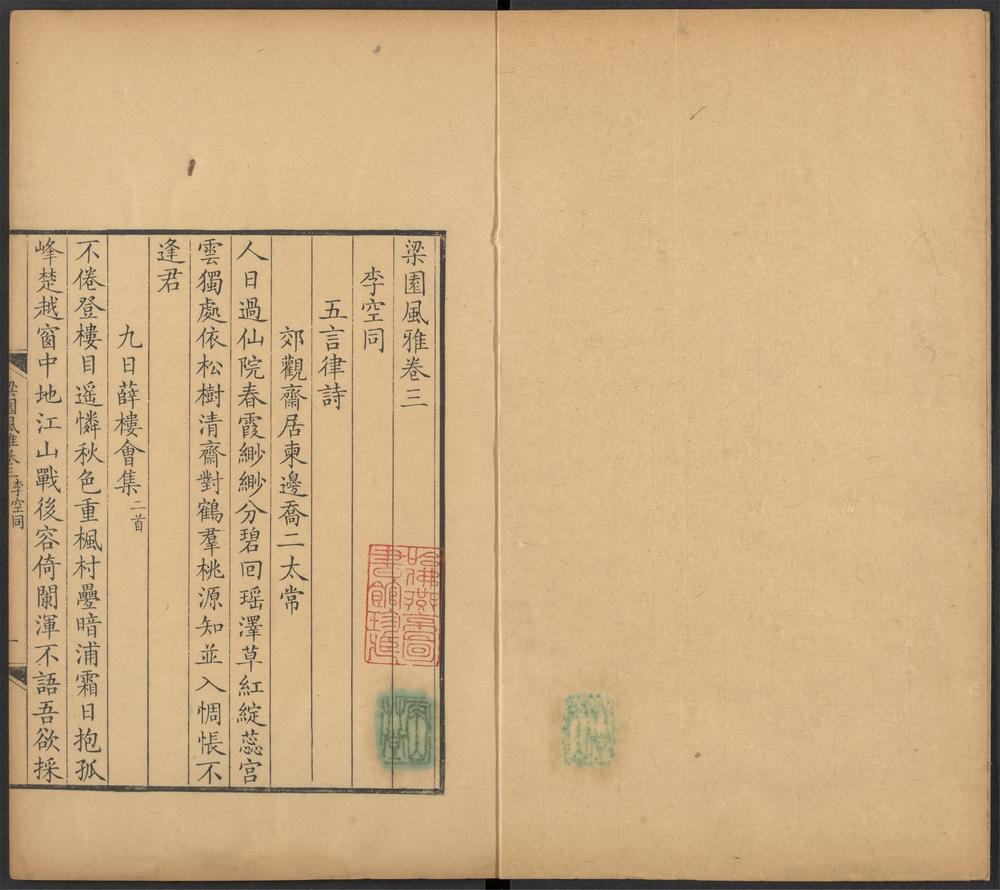 梁園風雅卷三
李空同
五言律詩
郊觀齋居柬邊喬二太常
人日過仙院春霞緲緲分碧回瑤澤草紅綻蕊宮
雲獨處依松樹清齋對鶴羣桃源知並入惆悵不
逢君
九日薛樓會集二首
不倦登樓目遥憐秋色重楓村疊暗浦霜日抱孤
峰楚越窗中地江山戰後容倚闌渾不語吾欲採
梁園風雅卷三 李空同 一
哈佛燕京圖
書館珍藏